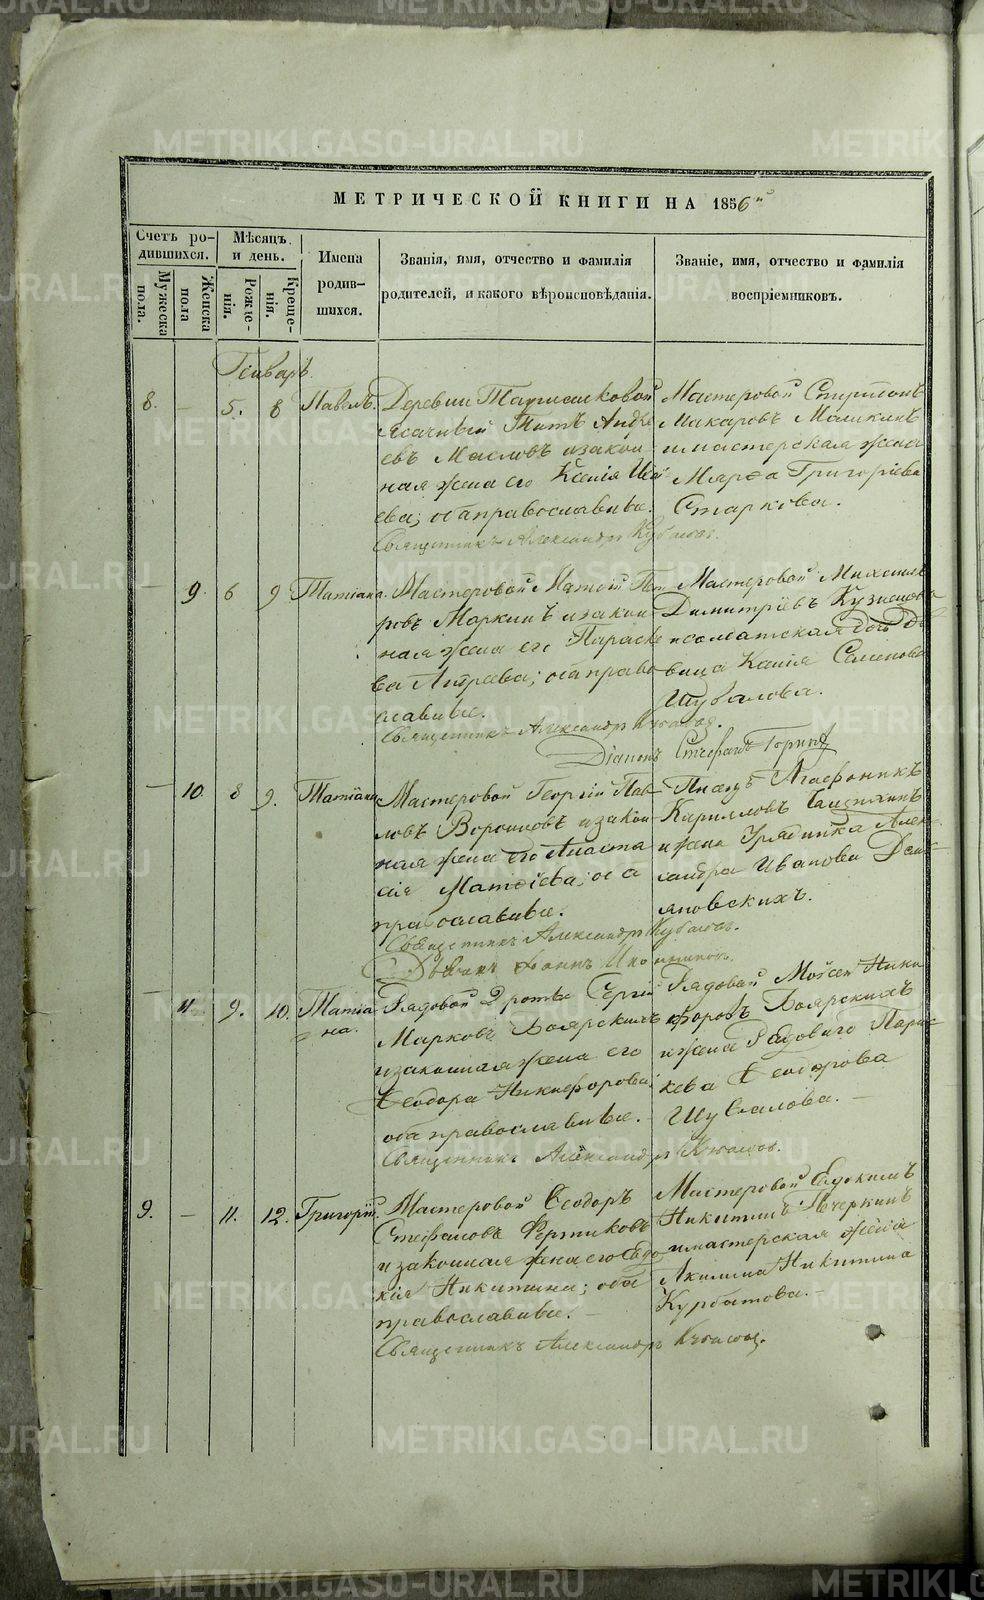 МЕТРИЧЕСКОЙ КНИГИ НА 1856й
Счетъ ро-
дившихся.
Мужеска
пола.
Женска
пола
Мѣсяцъ
и день.
Рожде-
нія.
Креще-
нія.
Имена
родив-
шихся.
Званія, имя, отчество и фамилія
родителей, и какого вѣроисповѣданія.
Званіе, имя, отчество и фамилія
воспріемниковъ.
Генварь.
8. - 5. 8 Павелъ.
Деревни
Ясачный Титъ Андре
евъ Масловъ и закон
ная жена его Ксенія
ева; оба православные.
Священникъ Александръ
Мастеровой Спиридонъ
Макаровъ Маликинъ
и мастерская жена
Марѳа Григоріева
Старкова.
- 9. 6 9 Татіана.
Мастеровой Матѳій Пет
ровъ Маркинъ и закон
ная жена его Параске
ва Андреева; оба право
славные.
Священникъ Александръ
Діаконъ Стефанъ
Мастеровой Михаилъ
Димитріевъ Кузнецовъ
и солдатская дочь дѣ
вица Ксенія Семенова
Шувалова.
- 10. 8 9. Татіана
Мастеровой Георгій Пав-
ловъ Воронковъ и закон
ная жена его Анаста
сія Матѳіева; оба
православные.
Священникъ Александръ
Іоаннъ
Писецъ Агафоникъ
Кирилловъ
и жена Урядника Алек-
сандра Иванова Демь-
яновскихъ.
- 11. 9. 10. Татіа
на.
Рядовой Сергій
Марковъ Боярскихъ
и законная жена его
Ѳеодора Никифорова;
оба православные.
Священникъ Александръ
Рядовой Мойсей Ники
форовъ Боярскихъ
и жена Рядового Парас-
кева Ѳеодорова
Шувалова. -
9. - 11. 12. Григорій.
Мастеровой Ѳеодоръ
Стефановъ
и законная жена его Евдо
кія Никитина; оба
православные. -
Священникъ Александръ
Мастеровой Евдокимъ
Никитинъ Печеркинъ
и мастерская жена
Акилина Никитина
Курбатова. -
METRIKI.GASO-URAL.RU